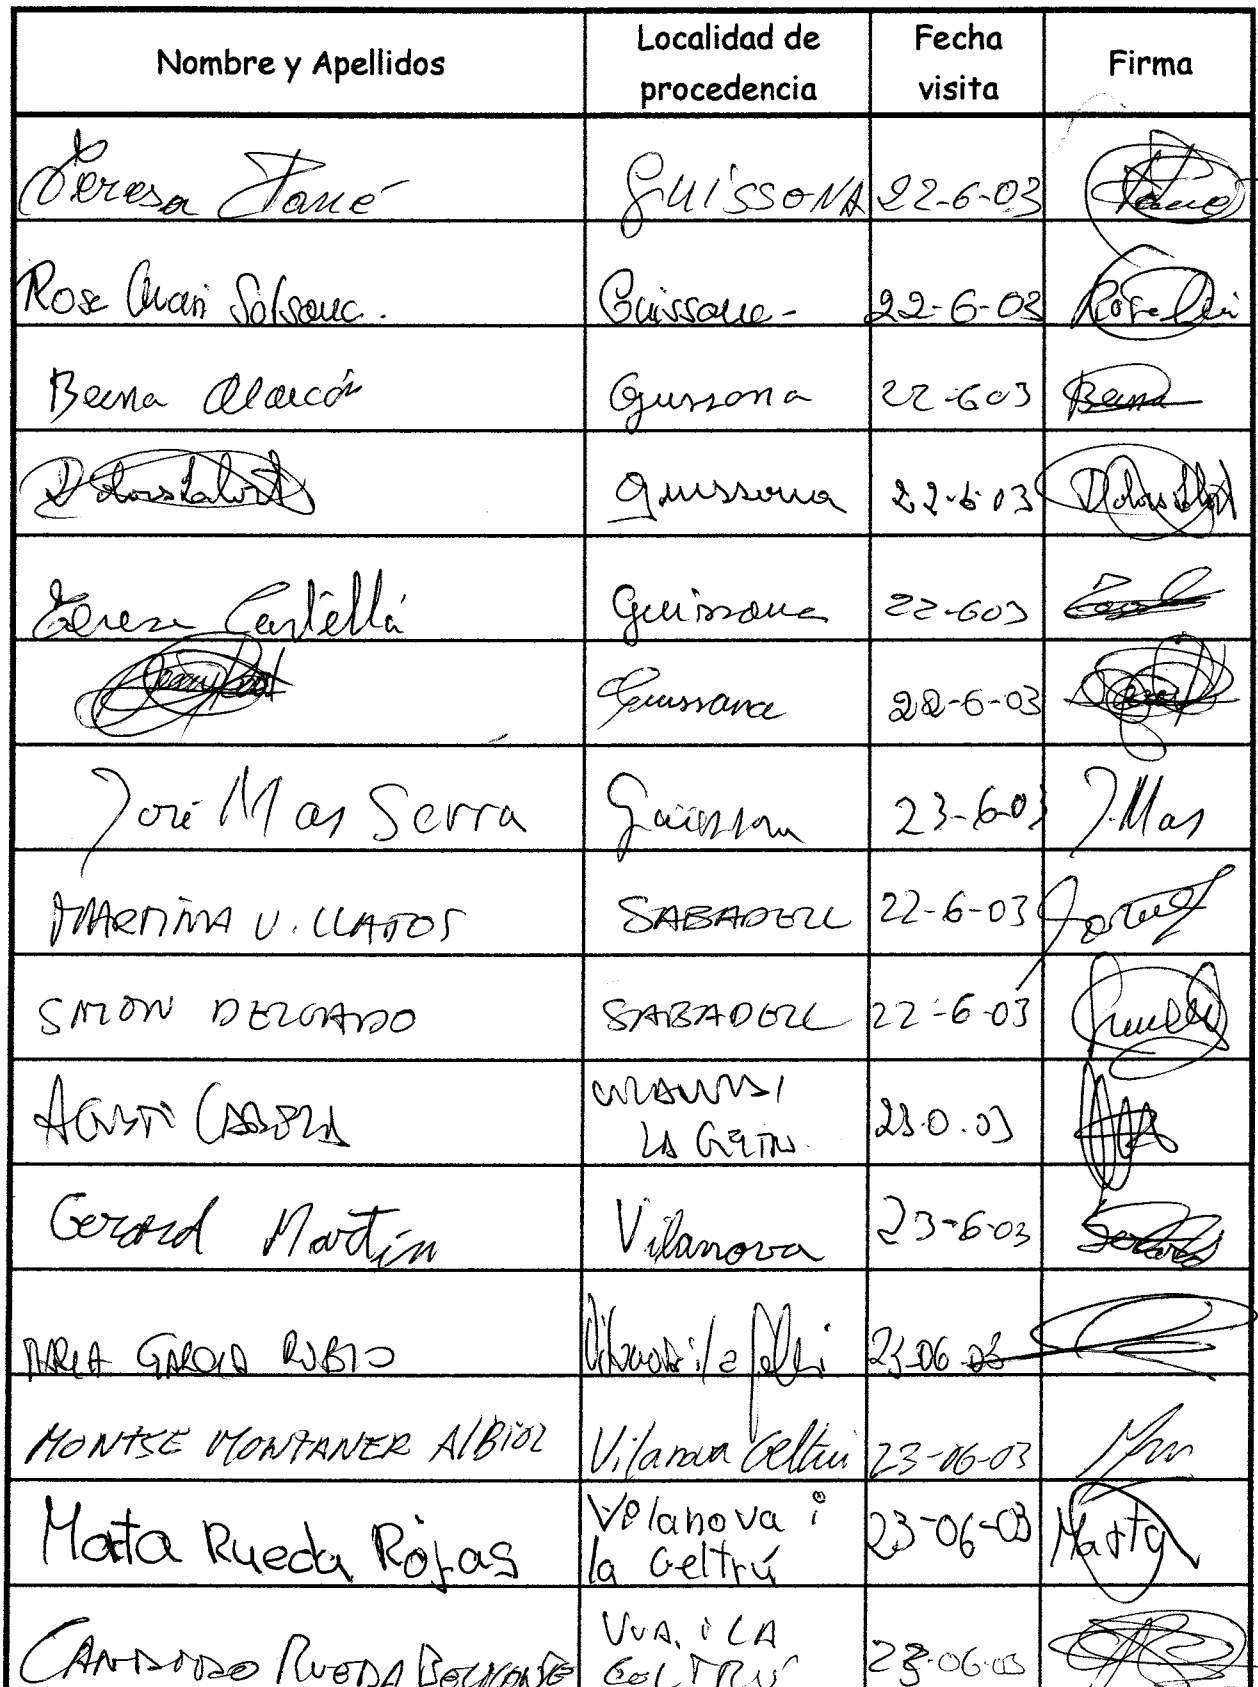 Nombre y Apellidos
Localidad de procedencia
Fecha visita
Firma
Teresa Tarré GUISSONA 22-6-03
Rosa Mari Solsona. Guissona - 22-6-03 Rosa Mari
Berna Alarcón Guissona 22-603 Berna
Dolors Guissona 22-6 03 Dolors
Teresa Castellá Guissona 22-603
Guissona 22-6-03
José Mas Serra Guissona 23-6-03 J. Mas
MARTINA V. LLATOS SABADELL 22-6-03
SIMON DELGADO SABADELL 22-6-03
AGUSTI
LA GELTRU
Gerard Martín Vilanova 23-6-03 Gerard
MARIA GARCIA RUBIO 23-06-03
MONTSE MONTANER AlBiOL Vilanova Geltrú 23-06-03
Marta Rueda Rojas Vilanova i la Geltrú 23-06-03 Marta
CANDIDO RUEDA VNA. i LA GELTRÚ 23-06-03